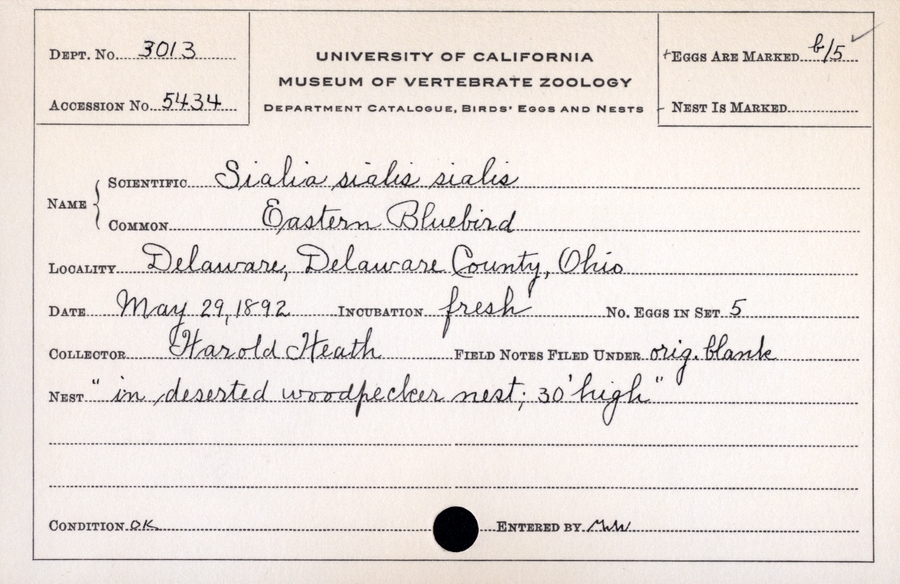 Dept. No. 3013
Accession No. 5434
UNIVERSITY OF CALIFORNIA
MUSEUM OF VERTEBRATE ZOOLOGY
Department Catalogue, Birds' Eggs and Nests
+ Eggs Are Marked b/5 ✓
- Nest Is Marked
Name { Scientific Sialia sialis sialis
Common Eastern Bluebird
Locality Delaware, Delaware County, Ohio
Date May 29, 1892 Incubation fresh No. Eggs in Set 5
Collector Harold Heath Field Notes Filed Under orig. blank
Nest "in deserted woodpecker nest; 30' high"
Condition OK Entered by